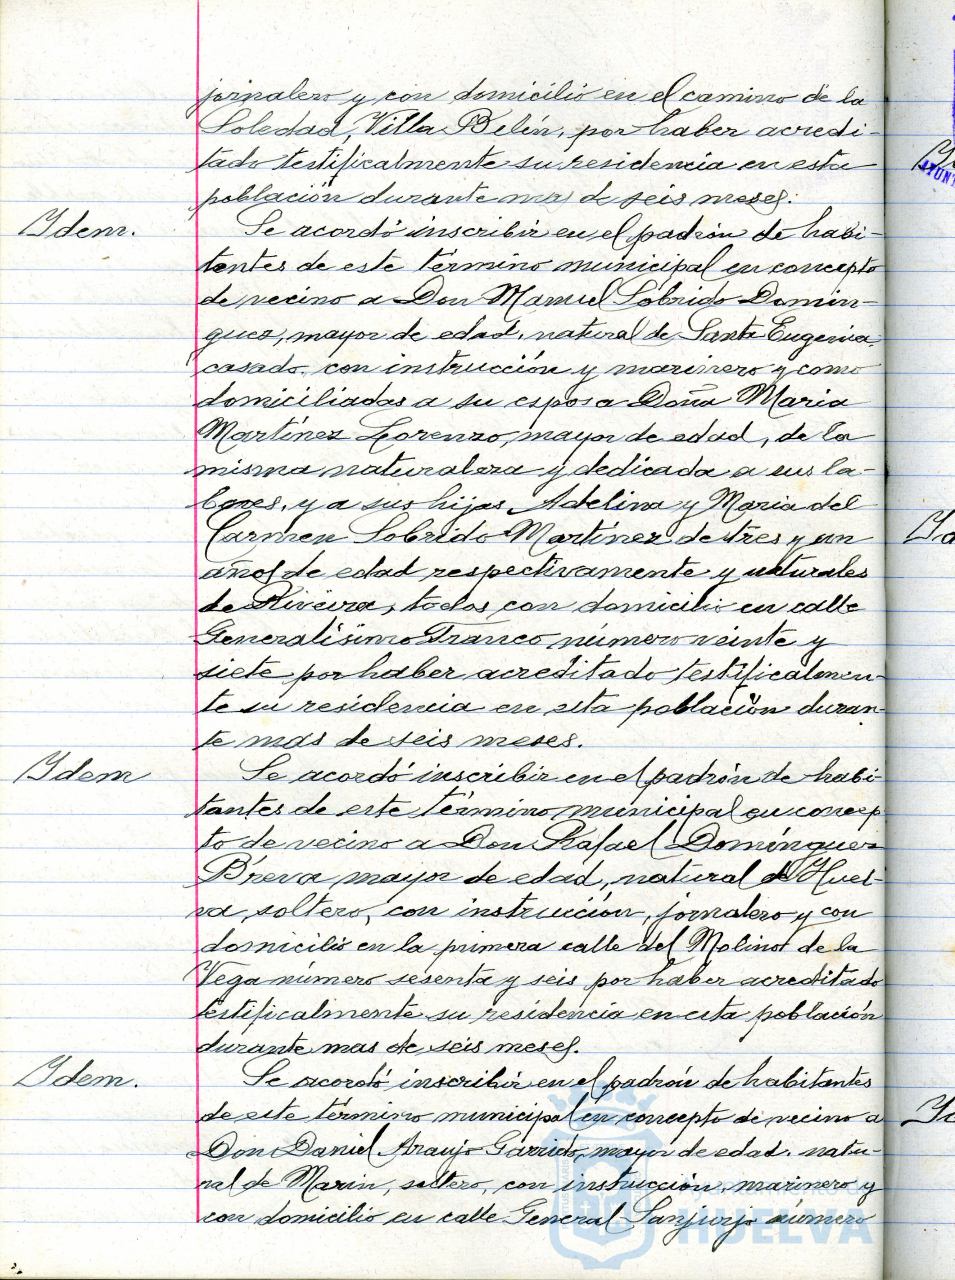 jornalero y con domicilio en el camino de la
Soledad, Villa Belén, por haber acredi-
tado testificalmente su residencia en esta
población durante mas de seis meses.
Ydem.
Se acordó inscribir en el padrón de habi-
tantes de este término municipal en concepto
de vecino a Don Manuel Sobrido Domin-
guez, mayor de edad, natural de Santa Eugenia,
casado, con instrucción y marinero y como
domiciliadas a su esposa Doña Maria
Martínez Lorenzo, mayor de edad, de la
misma naturaleza y dedicada a sus la-
bores, y a sus hijas Adelina y Maria del
Carmen Sobrido Martínez de tres y un
años de edad respectivamente y naturales
de Riveira, todos con domicilio en calle
Generalísimo Franco número veinte y
siete por haber acreditado testificalmen-
te su residencia en esta población duran-
te mas de seis meses.
Ydem
Se acordó inscribir en el padrón de habi-
tantes de este término municipal en concep-
to de vecino a Don Rafael Domínguez
Breva mayor de edad, natural de Huel-
va, soltero, con instrucción, jornalero y con
domicilio en la primera calle del Molino de la
Vega número sesenta y seis por haber acreditado
testificalmente su residencia en esta población
durante mas de seis meses.
Ydem.
Se acordó inscribir en el padrón de habitantes
de este término municipal en concepto de vecino a
Don Daniel Araujo Garrido, mayor de edad, natu-
ral de Marin, soltero, con instrucción, marinero y
con domicilio en calle General Sanjurjo número
HUELVA